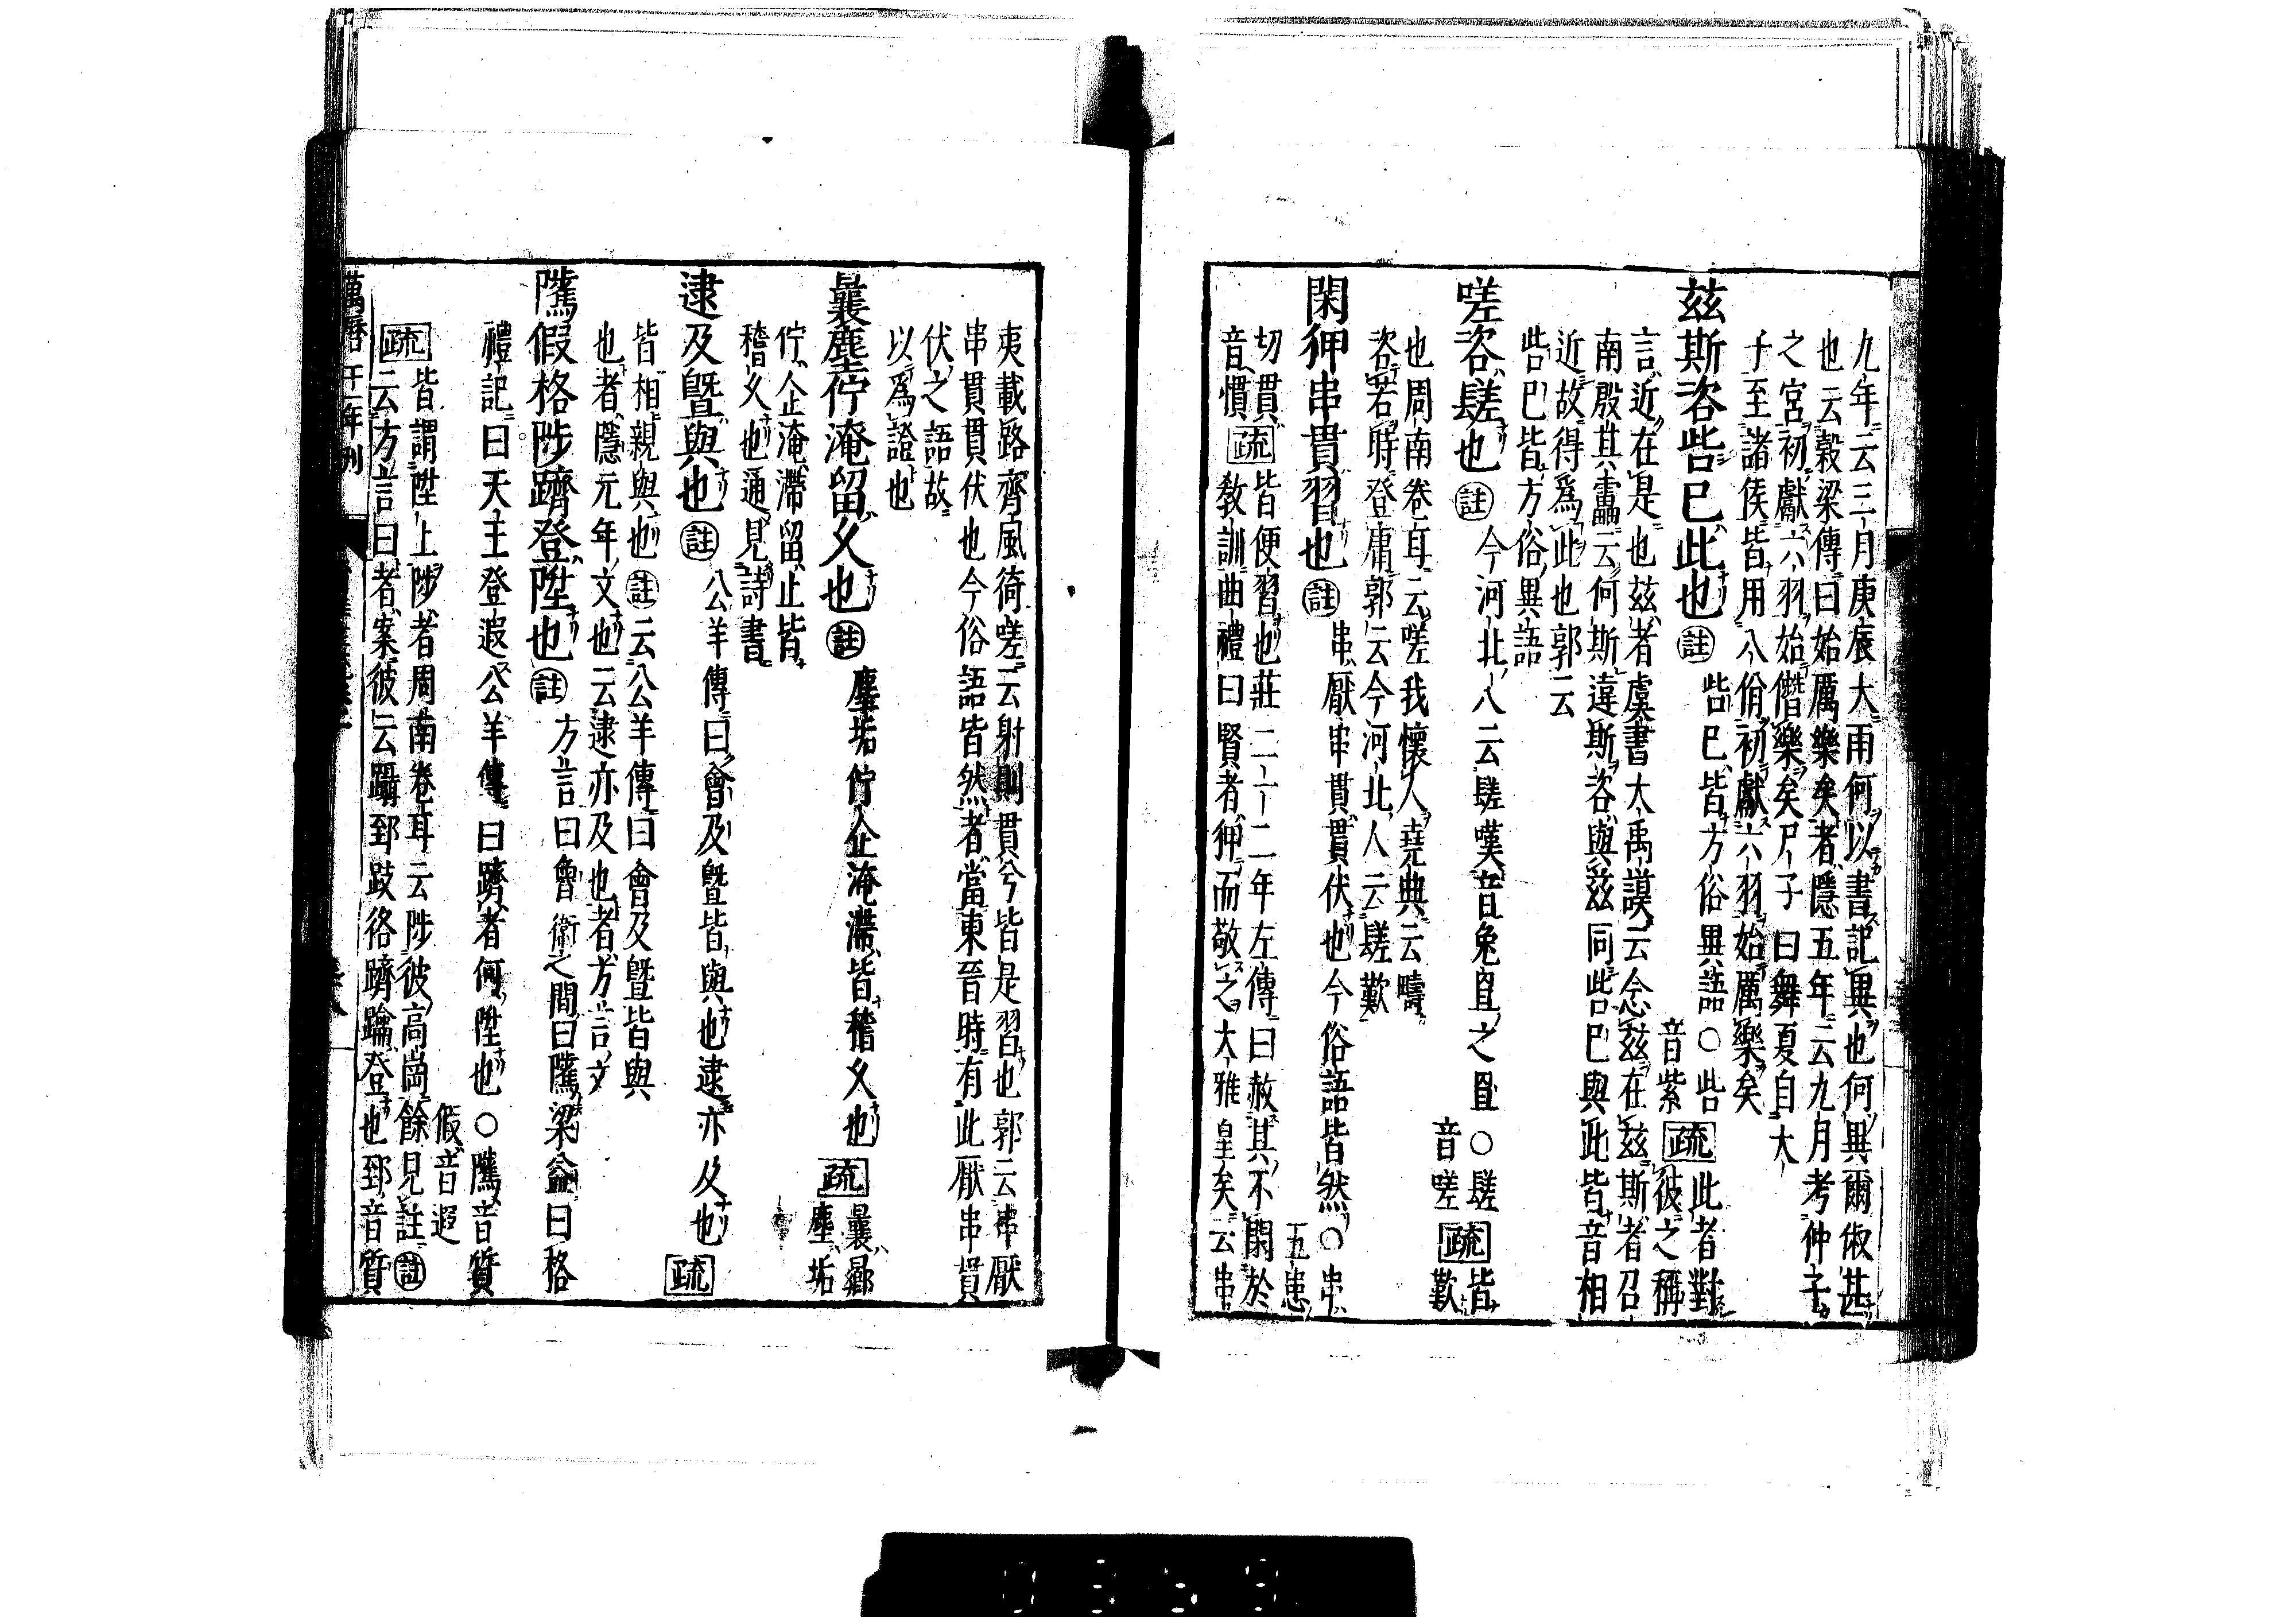 九年云三月庚辰大雨何以書記異也何異爾俶甚
也云穀梁傳曰始厲樂矣者隱五年云九月考仲子
之宮初獻六羽始僭樂矣尸子曰舞夏自大
子至諸侯皆用八佾初獻六羽始厲樂矣
茲斯咨呰已此也
註
呰已皆方俗異語○呰
音紫
疏
此者對
彼之稱
言近在是也茲者虞書大禹謨云念茲在茲斯者召
南殷其靁云何斯違斯咨與茲同呰已與此皆音相
近故得為此也郭云
呰巳皆方俗異語
嗟咨䰩也
註
今河北人云䰩嘆音兔罝之罝○䰩
音嗟
疏
皆
歎
也周南卷耳云嗟我懷人堯典云疇
咨若時登庸郭云今河北人云䰩歎
閑狎串貫習也
註
串厭串貫貫伏也今俗語皆然○串
五患
切貫
音慣
疏
皆便習也莊二十二年左傳曰赦其不閑於
教訓曲禮曰賢者狎而敬之大雅皇矣云串
夷載路齊風猗嗟云射則貫兮皆是習也郭云串厭
串貫貫伏也今俗語皆然者當東晉時有此厭串貫
伏之語故
以為證也
曩塵佇淹留久也
註
塵垢佇企淹滯皆稽久也
疏
曩曏
塵垢
佇企淹滯留止皆
稽久也通見詩書
逮及曁與也
註
公羊傳曰會及曁皆與也逮亦及也
疏
皆相親與也註云公羊傳曰會及曁皆與
也者隱元年文也云逮亦及也者方言文
騭假格陟躋登陞也
註
方言曰魯衛之間曰騭梁益曰格
禮記曰天王登遐公羊傳曰躋者何陞也○騭音質
假音遐
疏
皆謂陞上陟者周南卷耳云陟彼高崗餘見註註
云方言曰者案彼云躡郅跂佫躋踚登也郅音質
萬曆十一年刊